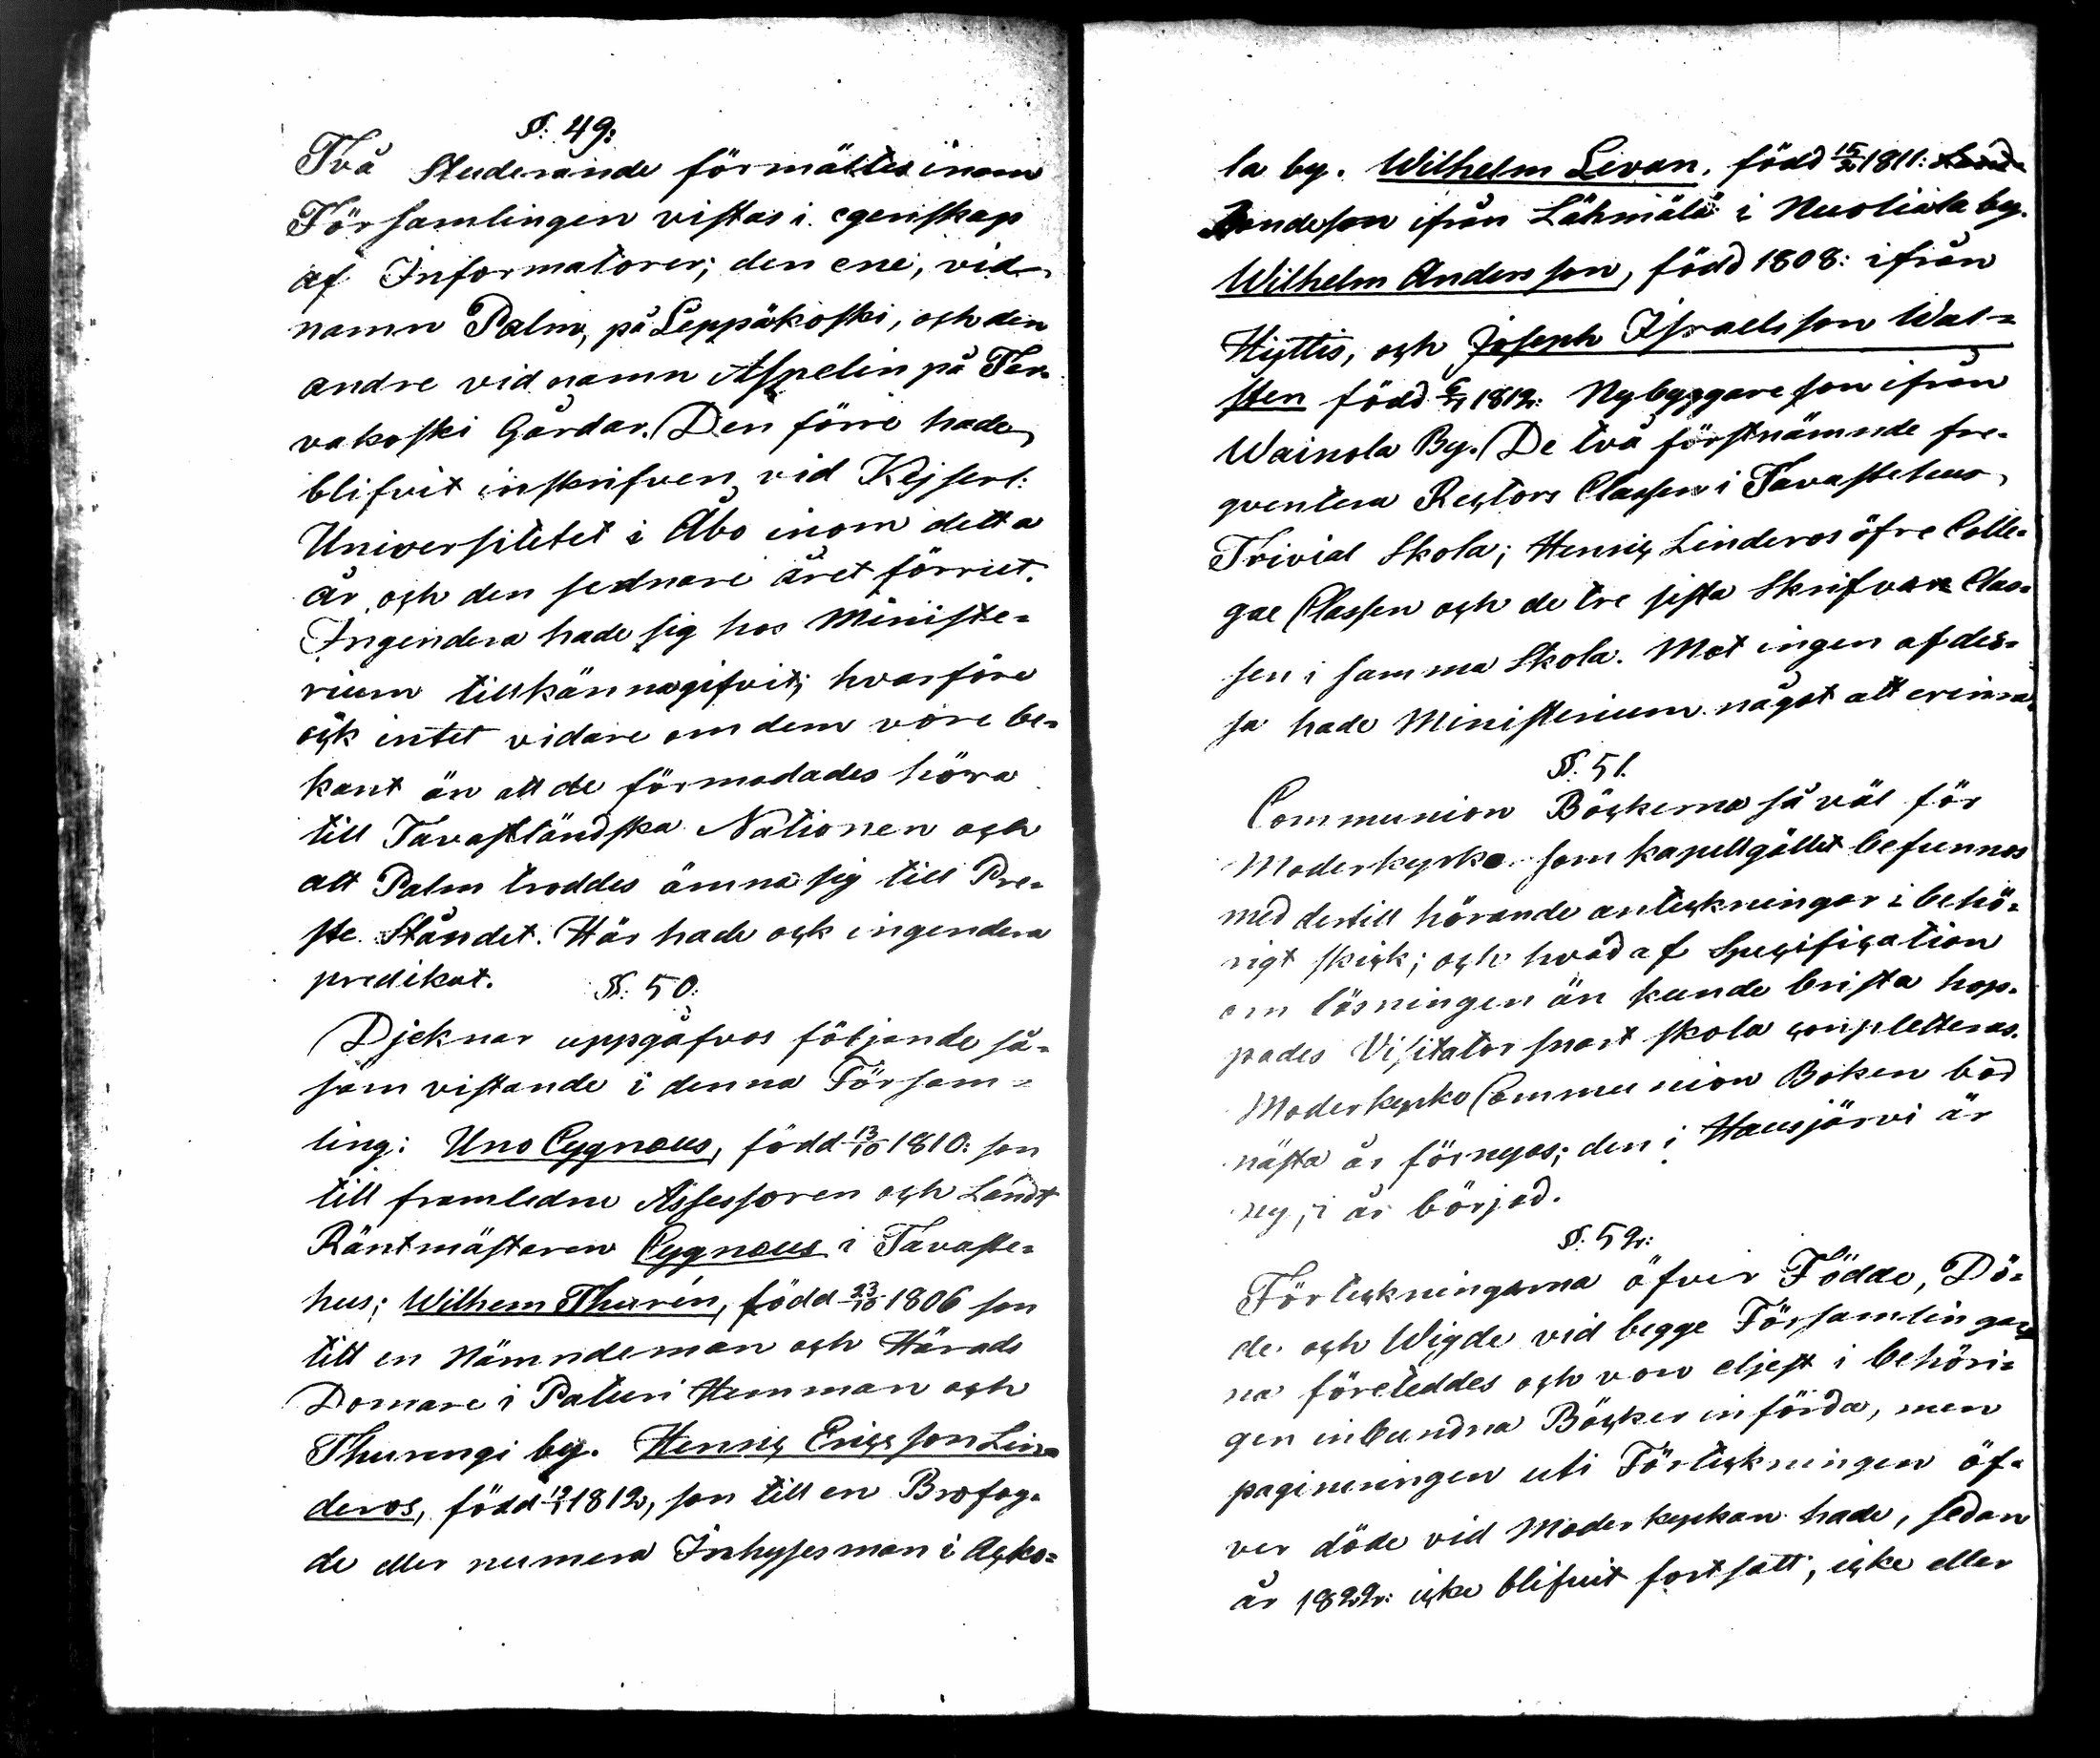 §. 49:
Två Studerande förmältes inom
Församlingen vistas i egenskap
af Informatorer; den ene, vid
namn Palm, på Leppäkoski, och den
andre vid namn Aspelin på Ter-
vakoski Gårdar. Den förre hade
blifvit inskrifven vid Kejserl:
Universitetet i Åbo inom detta
år och den sednare året förrut.
Ingendera hade sig hos Ministe=
rium tillkännagifvit; hvarföre
ock intet vidare om dem vore be=
kant än att de förmodades höra
till Tavastländska Nationen och
att Palm troddes ämna sig till Pre-
ste Ståndet. Här hade ock ingendera
predikat.
§. 50:
Djeknar uppgåfvos följande så-
som vistande i denna Försam=
ling: Uno Cygnæus, född 13/10 1810: son
till framledne Assessoren och Landt
Räntmästaren Cygnæus i Tavaste=
hus; Wilhem Thurén, född 23/10 1806 son
till en Nämndeman och Härads
Domare i Paturi Hemman och
Thurengi by. Henric Ericsson Lin=
deros, född 1812, son till en Brofog-
de eller numera Inhysesman i Acko=
la by. Wilhelm Levan, född 15/2 1811:
Bondeson ifrån Lähmälä i Nuoliala by.
Wilhelm Andersson, född 1808: ifrån
Hyttis, och Joseph Israelsson Wal=
sten född 1812: Nybyggare son ifrån
Wainola By. De två förstnämnde fre-
qventera Rectors Classen i Tavastehus
Trivial Skola; Henric Linderos öfre Colle-
gæ Classen och de tre sista Skrifvare Clas=
sen i samma Skola. Mot ingen af des-
sa hade Ministerium något att erinra.
§. 51.
Communion Böckerna så väl för
Moderkyrko som kapellgället befunnos
med dertill hörande anteckningar i behö-
rigt skick; och hvad af Specification
om läsningen än kunde brista hop-
pades Visitator snart skola completteras.
Moderkyrko Communion Boken bör
nästa år förnyas; den i Hausjärvi är
ny, i år börjad.
§. 52:
Förteckningarna öfver Födde, Dö=
de och Wigde vid begge Församlingar
na företeddes och voro eljest i behöri=
gen inbundna Böcker införda, men
pagineringen uti Förteckningen öf-
ver döde vid Moderkyrkan hade, sedan
år 1822: icke blifvit fortsatt, icke eller